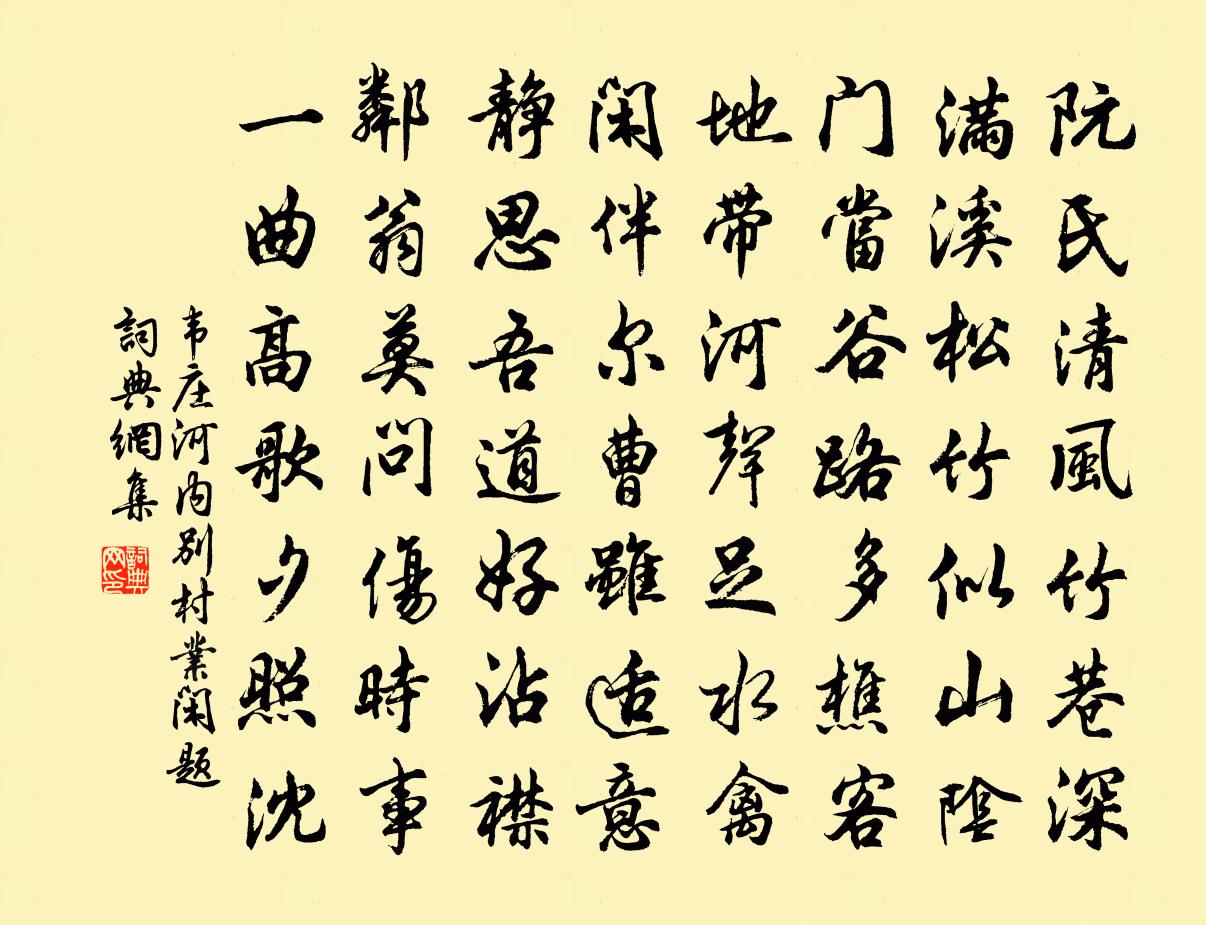 阮氏清風竹巷深
滿溪松竹似山陰
门當谷路多樵客
地带河聲足水禽
闲伴尔曹雖适意
靜思吾道好沾襟
鄰翁莫问傷時事
一曲高歌夕照沈
韦庄河内別村業闲题
詞典網集
詞典网印